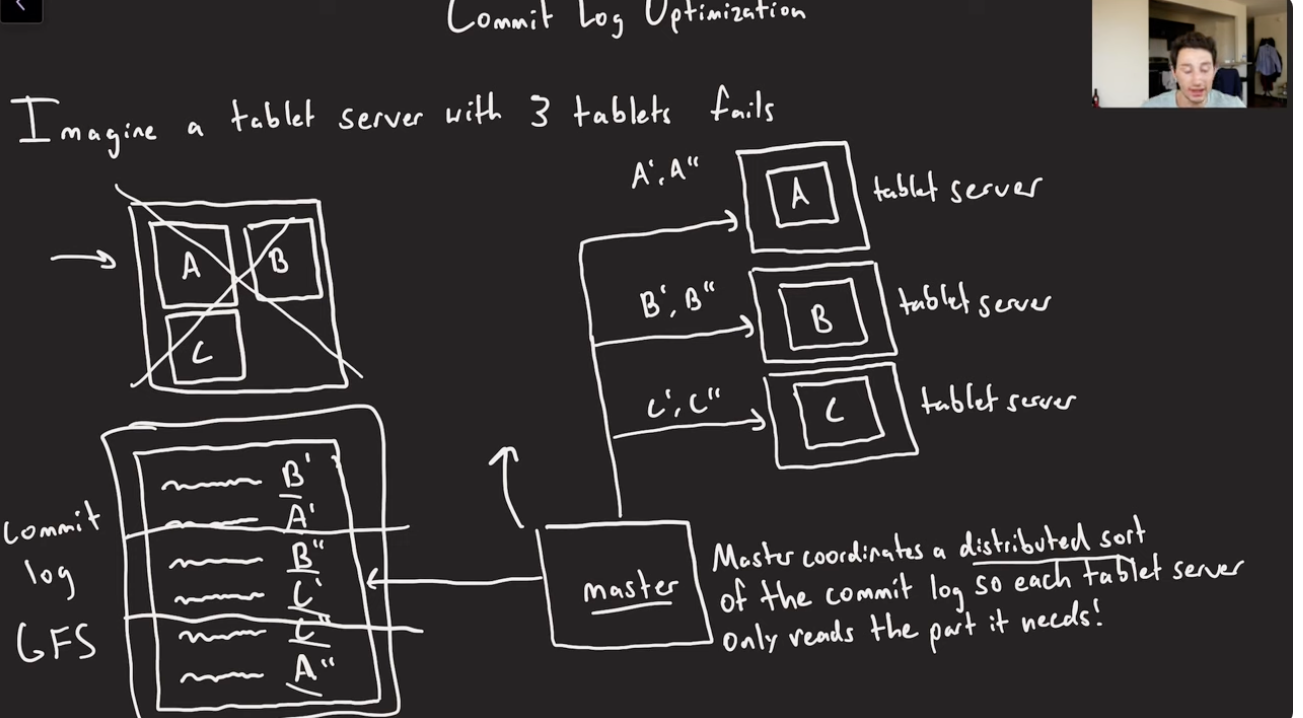 Commit Log Optimization
Imagine a tablet server with 3 tablets fails
A', A"
A
tablet server
A
B
C
B', B"
B
tablet server
C', C"
C
tablet server
B'
A'
B"
C'
C"
A"
Commit
log
GFS
master
Master coordinates a distributed sort
of the commit log so each tablet server
only reads the part it needs!